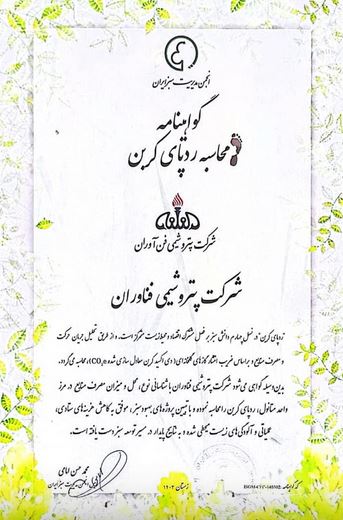 انجمن مدیریت سبز ایران
گواهینامه
محاسبه ردپای کربن
شرکت پتروشیمی فن آوران
شرکت پتروشیمی فناوران
ردپای کربن در نسل چهارم دانش سبز بر فصل مشترک اقتصاد و محیط زیست متمرکز است. و از طریق تحلیل جریان حرکت
و مصرف منابع و بر اساس ضریب انتشار گازهای گلخانه‌ای (دی اکسید کربن معادل سازی شده CO₂e)، محاسبه می‌گردد.
بدین وسیله گواهی می شود شرکت پتروشیمی فناوران با شناسائی نوع، محل و میزان مصرف منابع در مرز
واحد متانول، ردپای کربن را محاسبه نموده و با تعیین پروژه‌های بهبود سبز، موفق به کاهش هزینه‌های ستادی،
عملیاتی و آلودگی‌های زیست محیطی شده و به نتایج پایدار در مسیر توسعه سبز دست یافته است.
محمد حسن امامی
انجمن مدیریت سبز ایران
زمستان ۱۴۰۲
کد گواهینامه: